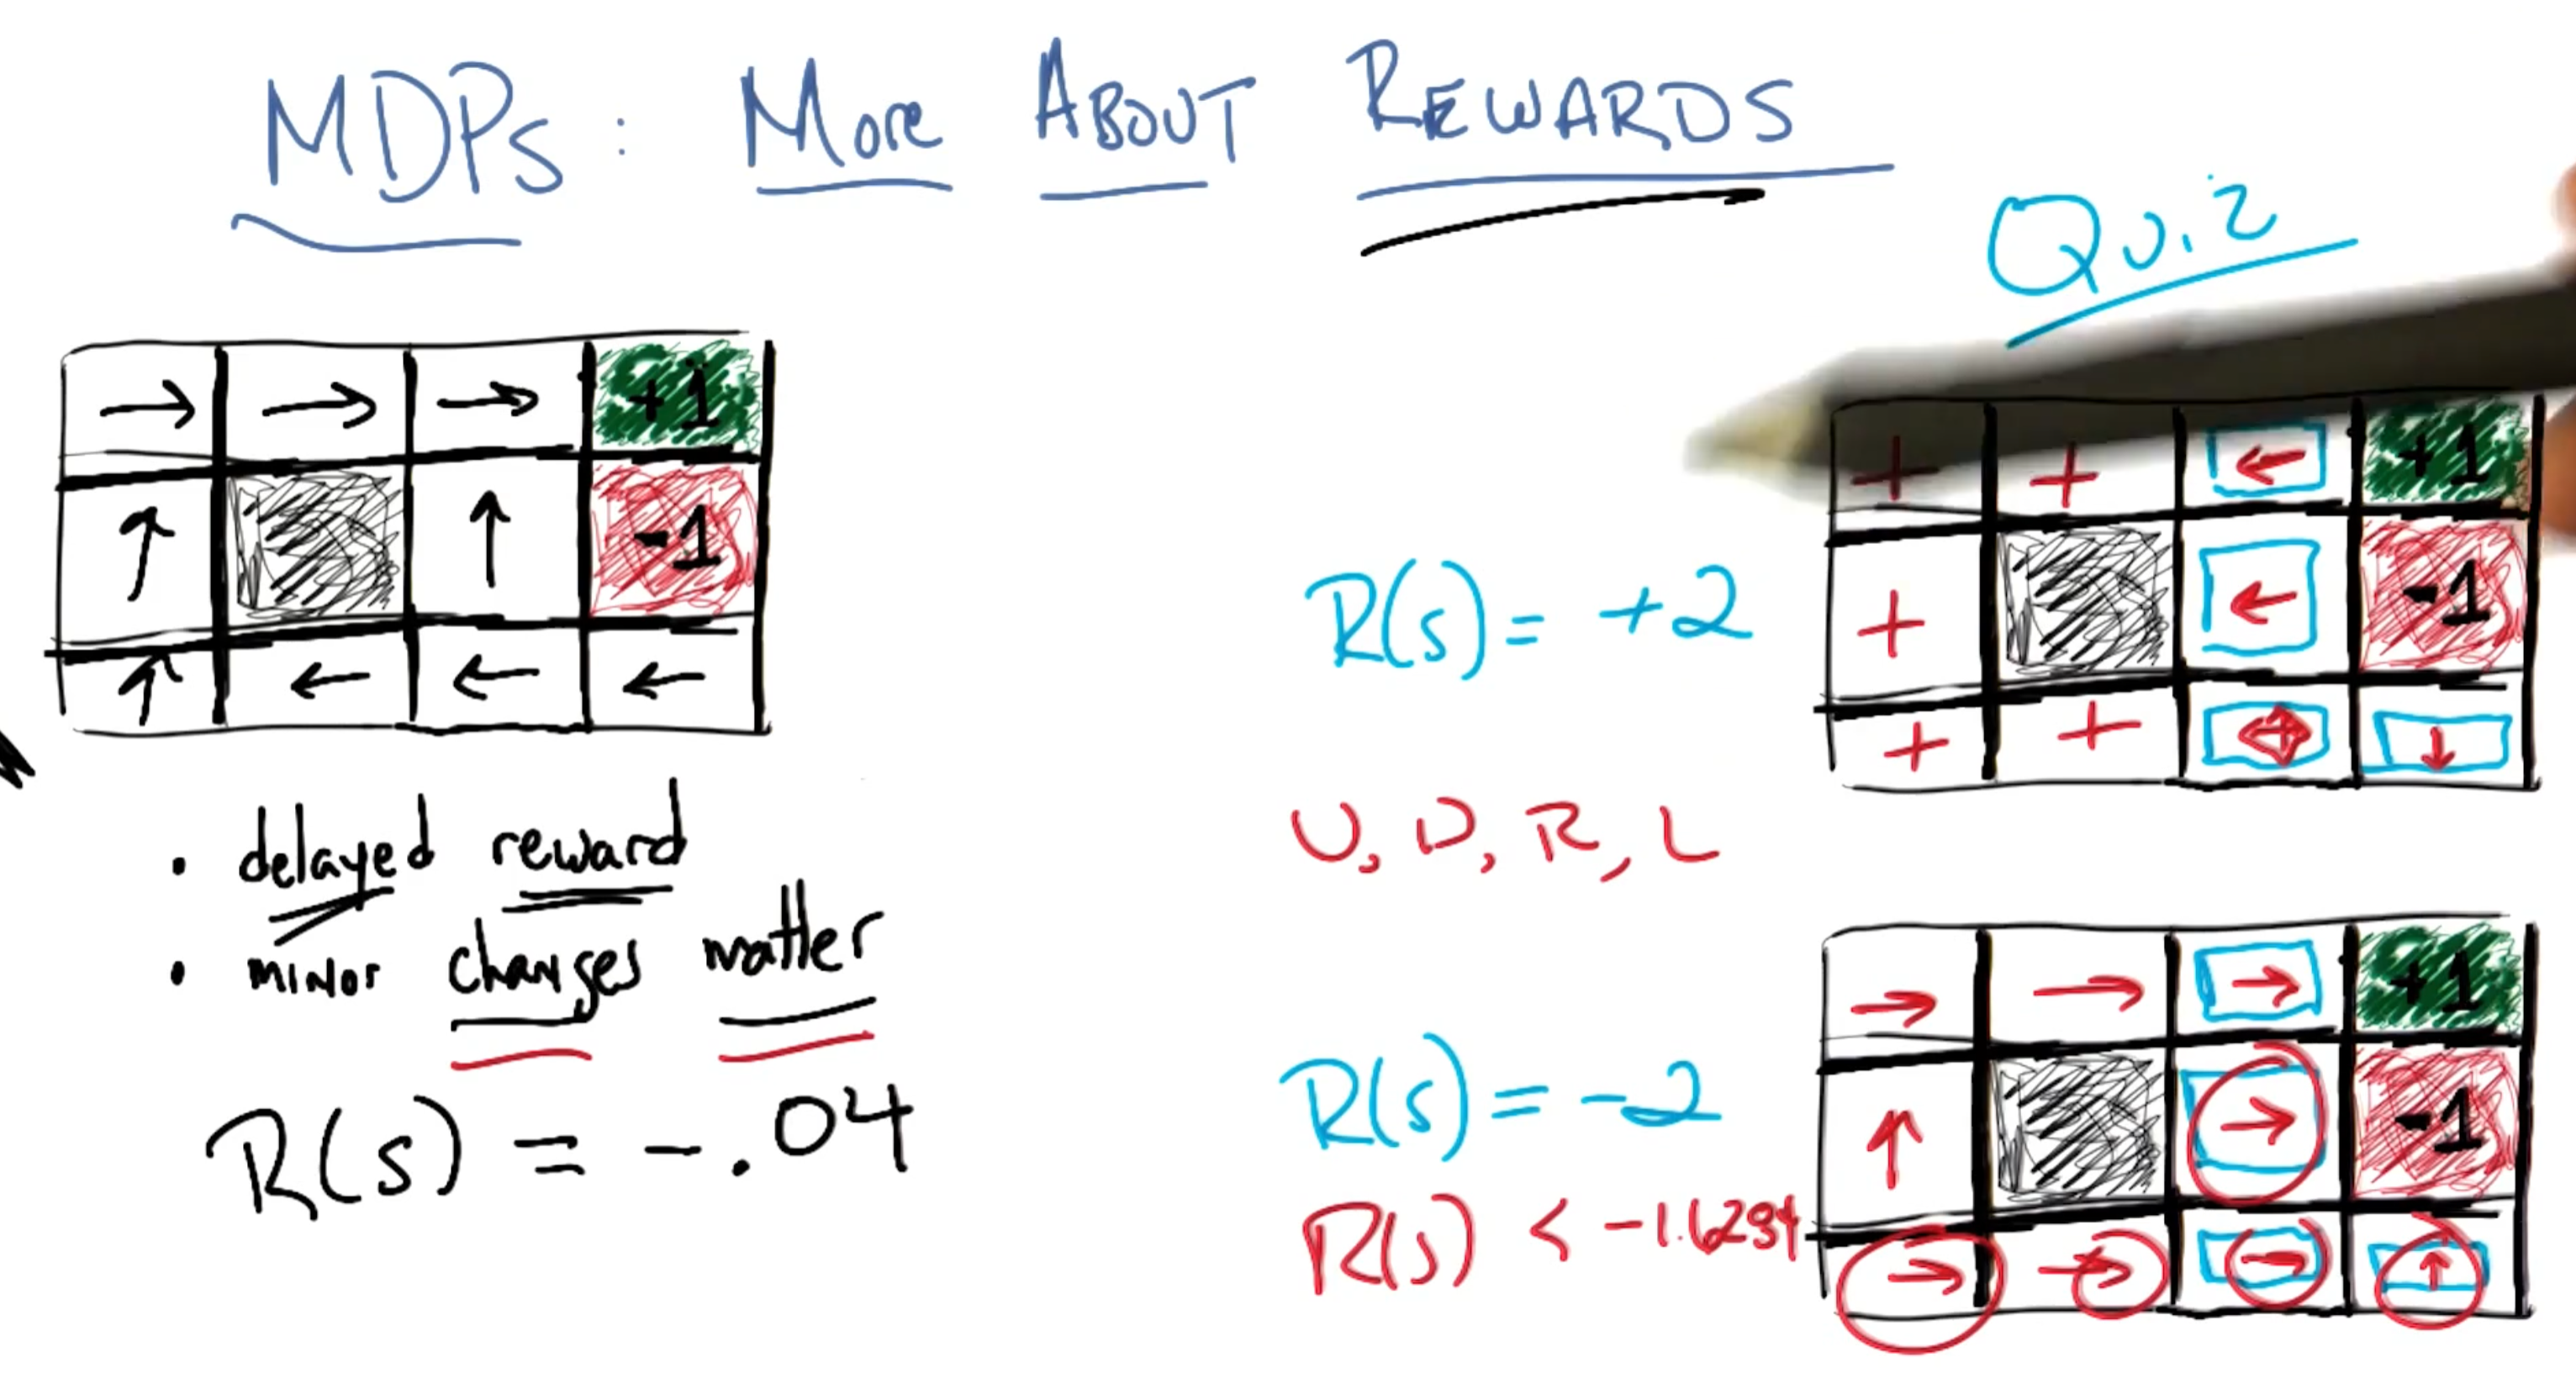 MDPs: MORE ABOUT REWARDS
Quiz
→ → → +1
↑ ↑ -1
↑ ← ← ←
• delayed reward
• minor changes matter
R(s) = -.04
R(s) = +2
+ + ← +1
+ ← -1
+ + ↓
U, D, R, L
R(s) = -2
R(s) < -1.6284
→ → → +1
↑ → -1
→ → → ↑